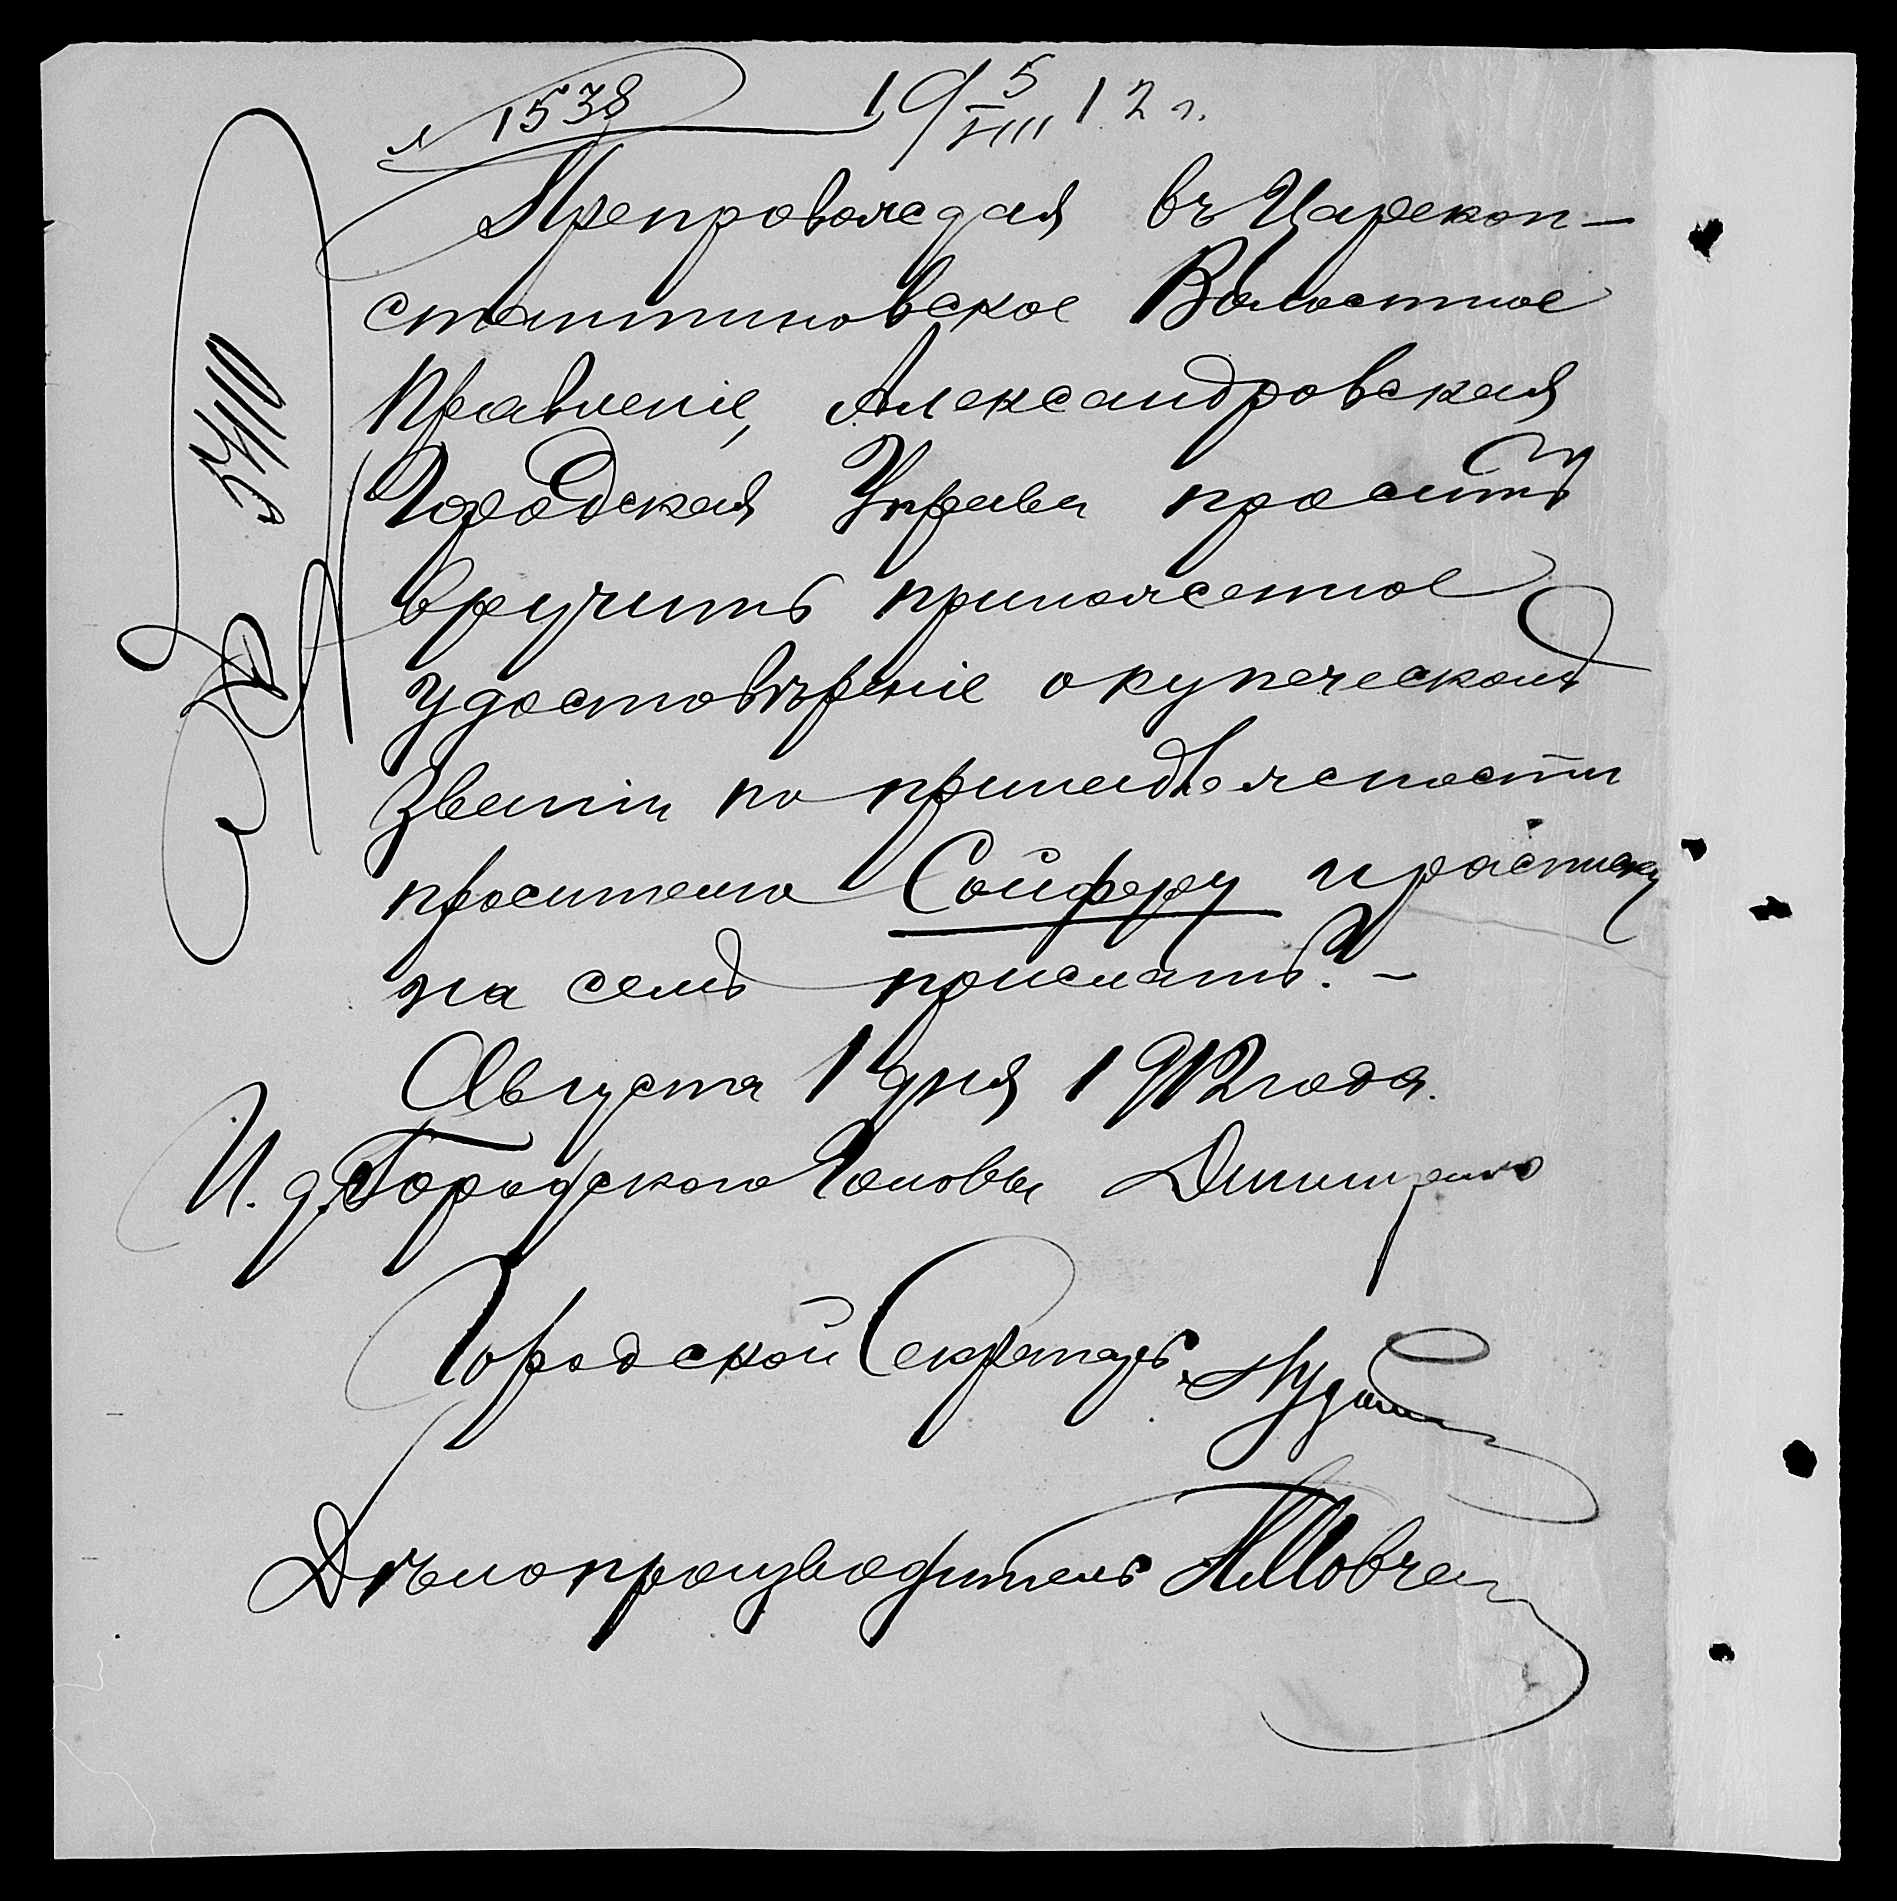 № 1538 19 5/VIII 12 г.
Препровождая въ Царекон-
стантиновское Волостное
Правленіе, Александровская
Городская Управа проситъ
вручить приложенное
удостовѣреніе о купеческомъ
званіи по принадлежности
просителю Сойферу и расписку
на семъ прислать. –
Августа 1 дня 1912 года.
И. д. Городского Головы
Городской Секретарь
Дѣлопроизводитель